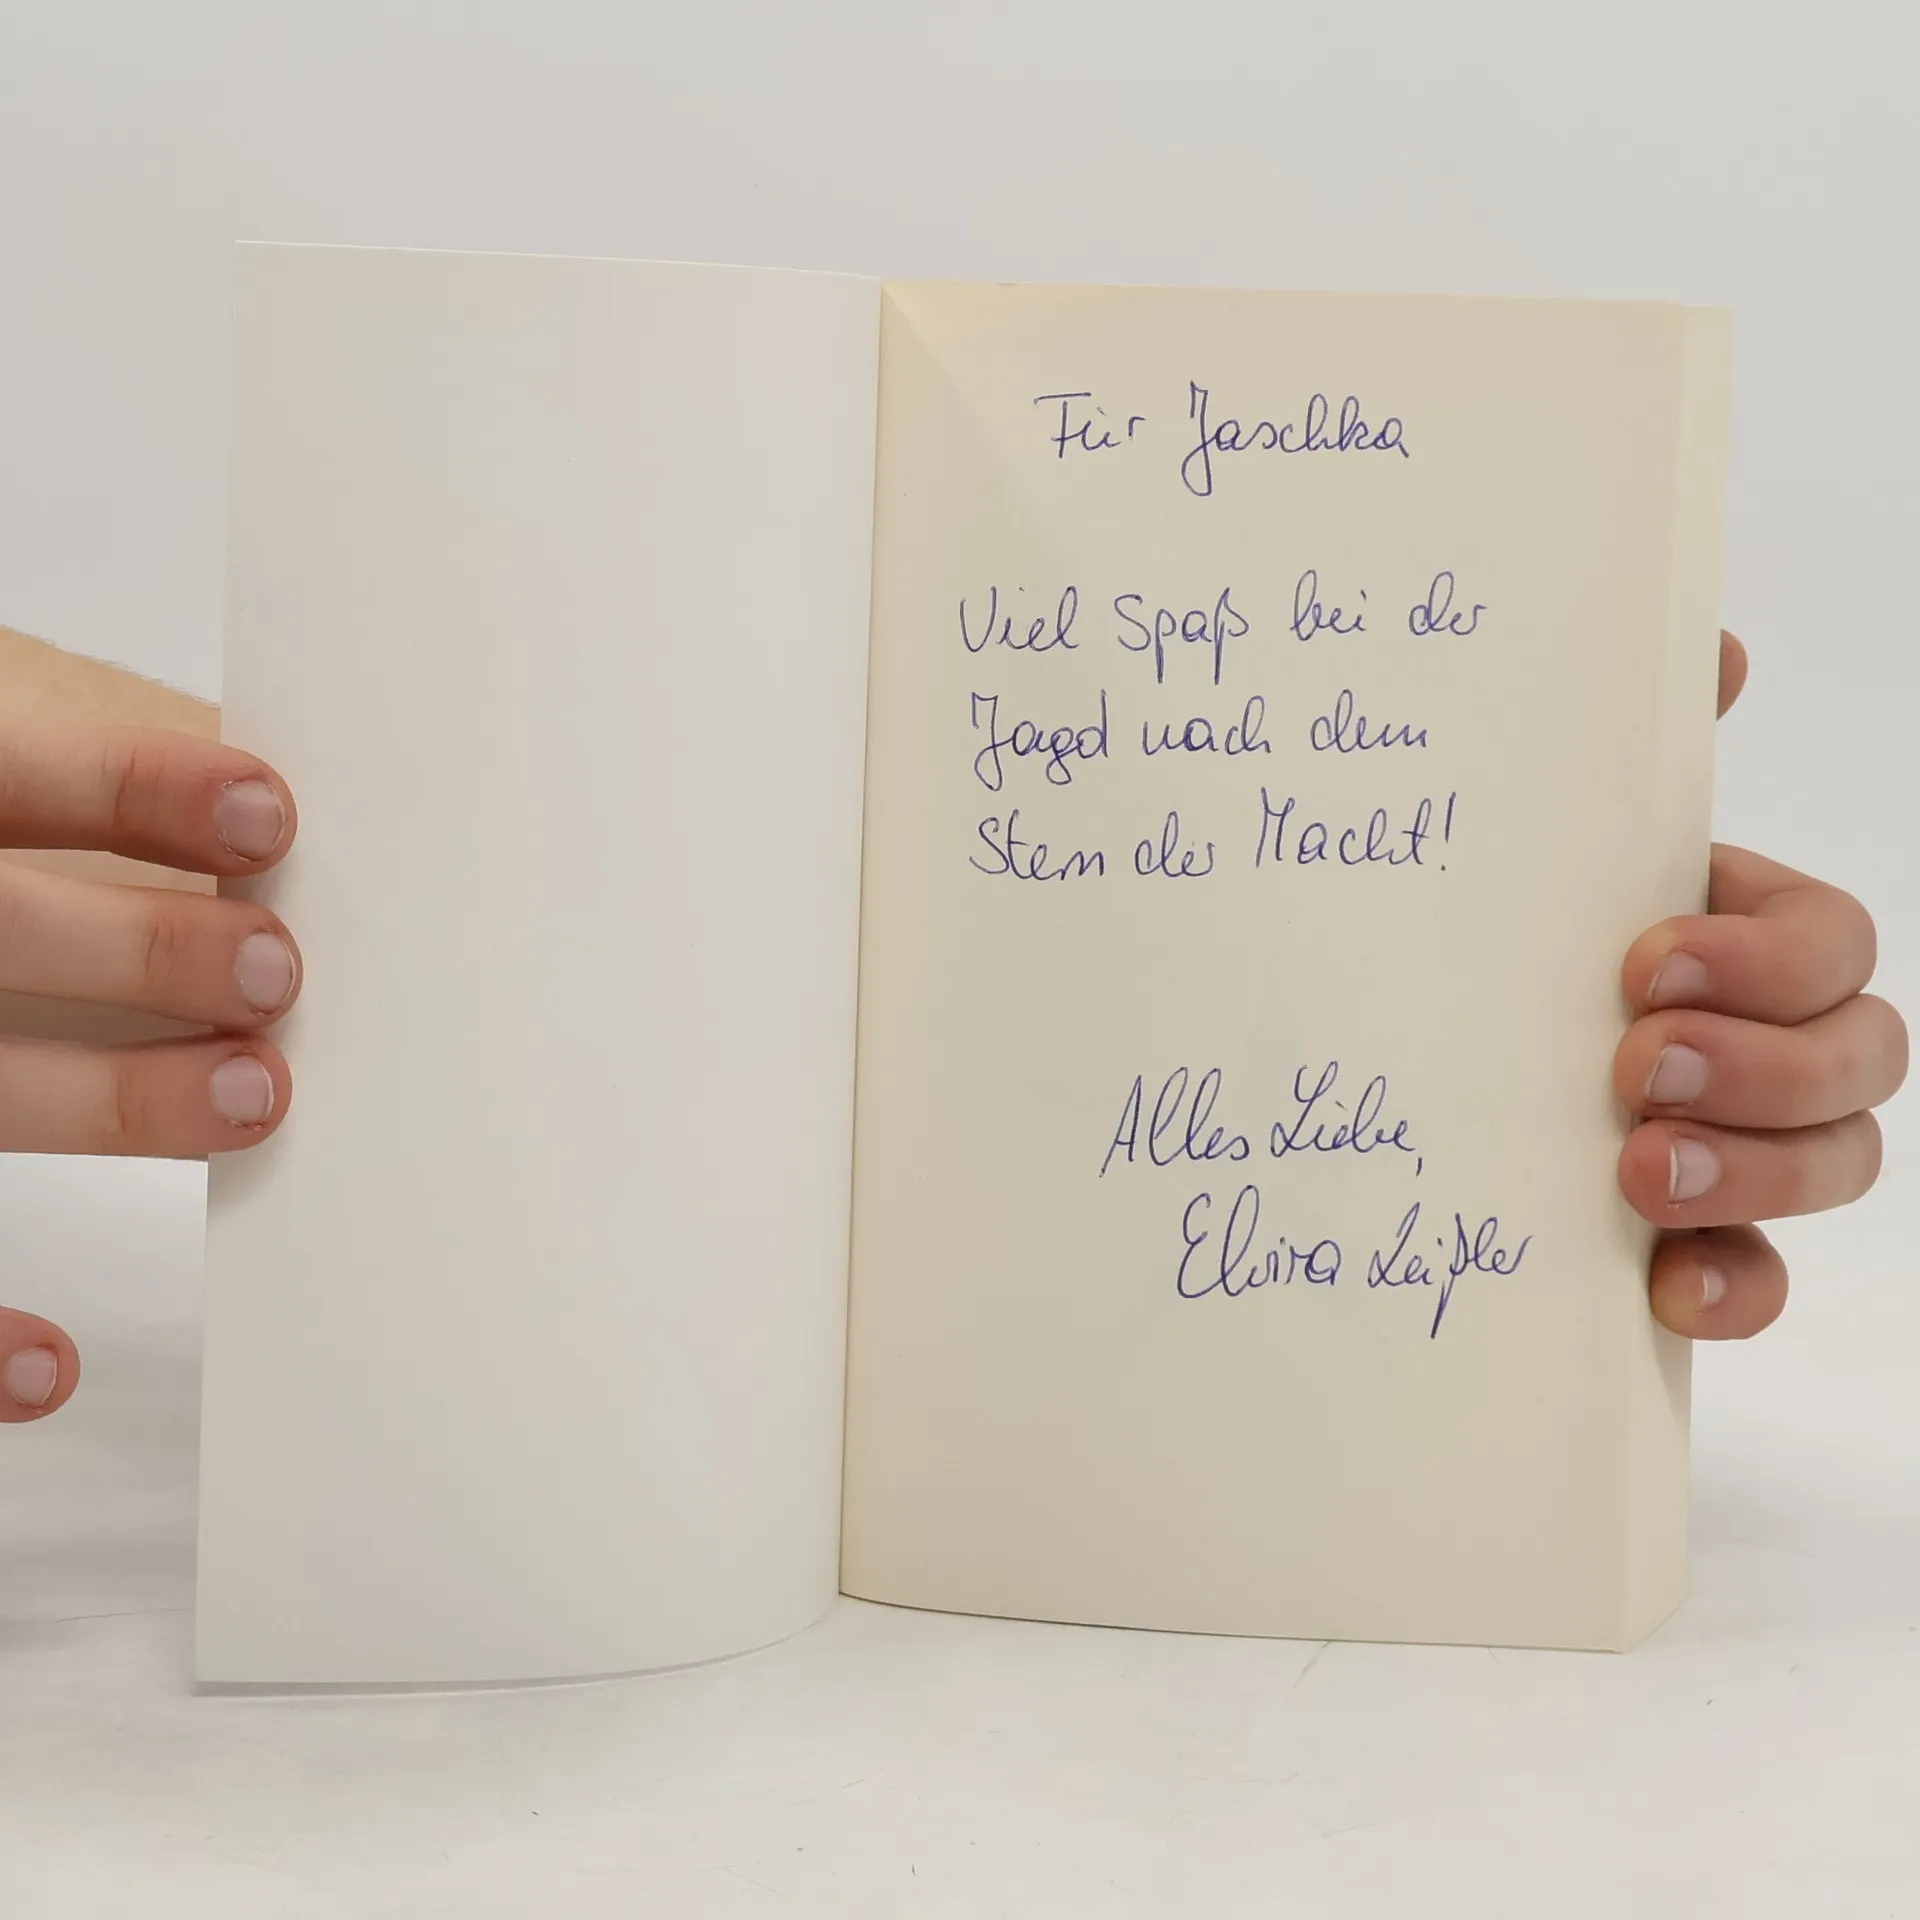 Für Jaschka
Viel Spaß bei der
Jagd nach dem
Stern der Macht!
Alles Liebe,
Elvira Zeißler